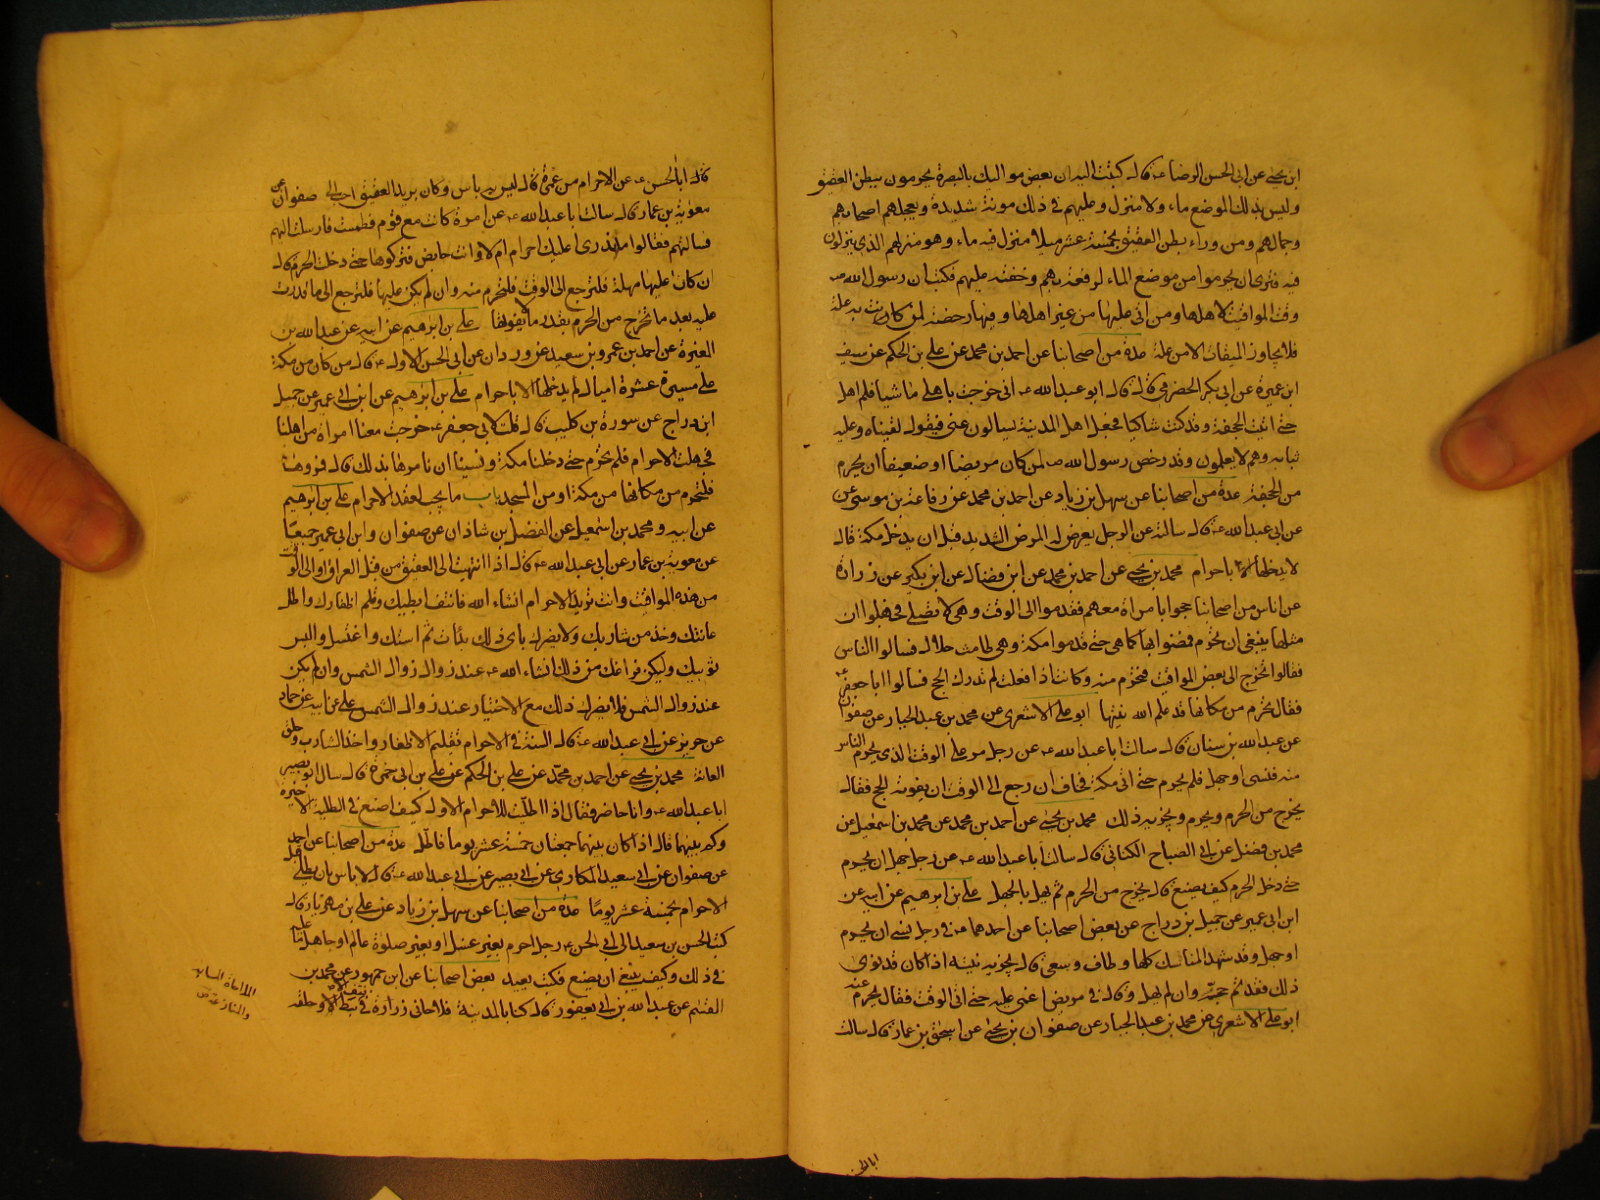 ابن يحيى عن ابى الحسن الرضا ع قال كتبت اليه ان بعض مواليك بالبصرة يحرمون ببطن العقيق
وليس بذلك الموضع ماء ولا منزل وعليهم في ذلك مونة شديدة ويعجلهم اصحابهم
وجمالهم ومن وراء بطن العقيق بخمسة عشر ميلا منزل فيه ماء وهو منزلهم الذي ينزلون
فيه فترى ان يحرموا من موضع الماء لرفقه بهم وخفته عليهم فكتب ان رسول الله ص
وقت المواقيت لاهلها ومن اتى عليها من غير اهلها وفيها رخصة لمن كانت به علة
فلا يجاوز الميقات الا من علة عدة من اصحابنا عن احمد بن محمد عن علي بن الحكم عن سيف
ابن عميرة عن ابى بكر الحضرمي قال قال ابو عبد الله ع انى خرجت باهلي ماشيا فلم اهل
حتى اتيت الجحفة وقد كنت شاكيا فجعل اهل المدينة يسالون عنى فيقولو لقيناه وعليه
ثيابه وهم لا يعلمون وقد رخص رسول الله ص لمن كان مريضا او ضعيفا ان يحرم
من الجحفة عدة من اصحابنا عن سهل بن زياد عن احمد بن محمد عن رفاعة بن موسى عن
عن ابى عبد الله ع قال سالته عن الرجل يعرض له المرض الشديد قبل ان يدخل مكة قال
لا يدخلها الا باحرام محمد بن يحيى عن احمد بن محمد عن ابن فضال عن ابن بكير عن زرارة
عن اناس من اصحابنا حجوا بامراة معهم فقدموا الى الوقت وهي لا تصلي فجهلوا ان
مثلها ينبغي ان تحرم فمضوا بها كما هي حتى قدموا مكة وهي طامث حلال فسالوا الناس
فقالوا تخرج الى بعض المواقيت فتحرم منه وكانت اذا فعلت لم تدرك الحج فسالوا ابا جعفر ع
فقال تحرم من مكانها قد علم الله نيتها ابو علي الاشعري عن محمد بن عبد الجبار عن صفوان
عن عبد الله بن سنان قال سالت ابا عبد الله ع عن رجل مر على الوقت الذي يحرم الناس
منه فنسى او جهل فلم يحرم حتى اتى مكة فخاف ان رجع الى الوقت ان يفوته الحج فقال
يخرج من الحرم ويحرم ويجزيه ذلك محمد بن يحيى عن احمد بن محمد عن محمد بن اسمعيل عن
محمد بن فضيل عن ابى الصباح الكناني قال سالت ابا عبد الله ع عن رجل جهل ان يحرم
حتى دخل الحرم كيف يصنع قال يخرج من الحرم ثم يهل بالحج علي بن ابرهيم عن ابيه عن
ابن ابى عمير عن جميل بن دراج عن بعض اصحابنا عن احدهما ع في رجل نسى ان يحرم
او جهل وقد شهد المناسك كلها وطاف وسعى قال يجزيه نيته اذا كان قد نوى
ذلك فقد تم حجه وان لم يهل وقال في مريض اغمى عليه حتى اتى الوقت فقال يحرم عنه
ابو علي الاشعري عن محمد بن عبد الجبار عن صفوان بن يحيى عن اسحق بن عمار قال سالت
ابا الحسن
قال ابا الحسن ع عن الاحرام من غمرة قال ليس به باس وكان بريد العقيق احب الى صفوان عن
معوية بن عمار قال سالت ابا عبد الله ع عن امرة كانت مع قوم فطمثت فارسلت اليهم
فسالتهم فقالوا ما ندرى اعليك احرام ام لا وانت حايض فتركوها حتى دخلت الحرم قال
ان كان عليها مهلة فلترجع الى الوقت فلتحرم منه وان لم يكن عليها فلترجع الى ما قدرت
عليه بعد ما تخرج من الحرم بقدر ما لا يفوتها علي بن ابرهيم عن ابيه عن عبد الله بن
المغيرة عن احمد بن عمرو بن سعيد عن وردان عن ابى الحسن الاول ع قال من كان من مكة
على مسيرة عشرة اميال لم يدخلها الا باحرام علي بن ابرهيم عن ابن ابى عمير عن جميل
ابن دراج عن سورة بن كليب قال قلت لابى جعفر ع خرجت معنا امراة من اهلنا
فجهلت الاحرام فلم تحرم حتى دخلنا مكة ونسينا ان نامرها بذلك قال فمروها
فلتحرم من مكانها من مكة او من المسجد باب ما يجب لعقد الاحرام علي بن ابرهيم
عن ابيه ومحمد بن اسمعيل عن الفضل بن شاذان عن صفوان وابن ابى عمير جميعا
عن معوية بن عمار عن ابى عبد الله ع قال اذا انتهيت الى العقيق من قبل العراق او الى الوقت
من هذه المواقيت وانت تريد الاحرام انشاء الله فانتف ابطيك وقلم اظفارك واطل
عانتك وخذ من شاربك ولا يضرك باى ذلك بدات ثم استك واغتسل والبس
ثوبيك وليكن فراغك من ذلك انشاء الله عند زوال الشمس وان لم يكن
عند زوال الشمس فلا يضرك ذلك مع الاختيار عند زوال الشمس علي عن ابيه عن حماد
عن حريز عن ابى عبد الله ع قال السنة في الاحرام تقليم الاظفار واخذ الشارب وحلق
العانة محمد بن يحيى عن احمد بن محمد عن علي بن الحكم عن علي بن ابى حمزة قال سال ابو بصير
ابا عبد الله ع وانا حاضر فقال اذا اطليت للاحرام الاول كيف اصنع في الطلية الاخيرة
وكم بينهما قال اذا كان بينهما جمعتان خمسة عشر يوما فاطل عدة من اصحابنا عن احمد
عن صفوان عن ابى سعيد المكاري عن ابى بصير عن ابى عبد الله ع قال لا باس بان يطلي قبل
الاحرام بخمسة عشر يوما عدة من اصحابنا عن سهل بن زياد عن علي بن مهزيار قال
كتب الحسن بن سعيد الى ابى الحسن ع رجل احرم بغير غسل او بغير صلوة عالم او جاهل ما عليه
في ذلك وكيف ينبغي ان يصنع فكتب يعيد بعض اصحابنا عن ابن جمهور عن محمد بن
القسم عن عبد الله بن ابى يعفور قال كنا بالمدينة فلاحانى زرارة في نتف الابط وحلقه